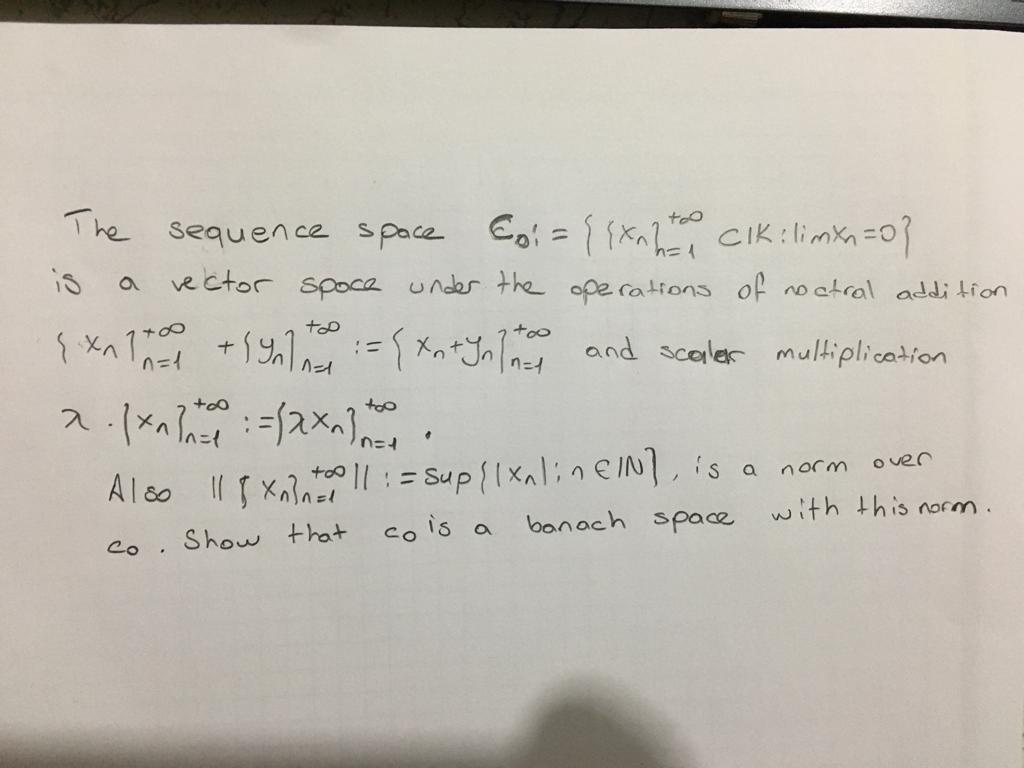 The sequence space c₀ := { {xₙ}ₙ₌₁^+∞ ⊂ IK : lim xₙ = 0 }
is a vector space under the operations of noctral addition
{xₙ}ₙ₌₁^+∞ + {yₙ}ₙ₌₁^+∞ := {xₙ+yₙ}ₙ₌₁^+∞ and scaler multiplication
λ . {xₙ}ₙ₌₁^+∞ := {λxₙ}ₙ₌₁^+∞ .
Also || {xₙ}ₙ₌₁^+∞ || := sup{|xₙ| ; n ∈ IN}, is a norm over
c₀. Show that c₀ is a banach space with this norm.